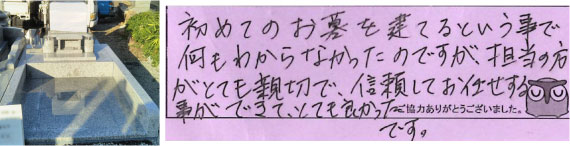 初めてのお墓を建てるという事で
何もわからなかったのですが、担当の方
がとても親切で、信頼してお任せする
事ができて、とても良かった
ご協力ありがとうございました。
です。